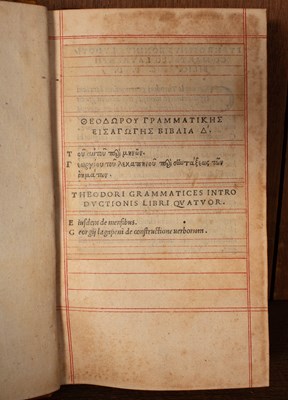 ΘΕΟΔΩΡΟΥ ΓΡΑΜΜΑΤΙΚΗΣ
ΕΙΣΑΓΩΓΗΣ ΒΙΒΛΙΑ Δ'.
Τ οῦ αὐτοῦ περὶ μηνῶν.
Γ εωργίου τοῦ λεκαπηνοῦ περὶ συντάξεως τῶν
ῥημάτων.
THEODORI GRAMMATICES INTRO
DVCTIONIS LIBRI QVATVOR.
E iusdem de mensibus.
G eorgij lagapeni de constructione uerborum.